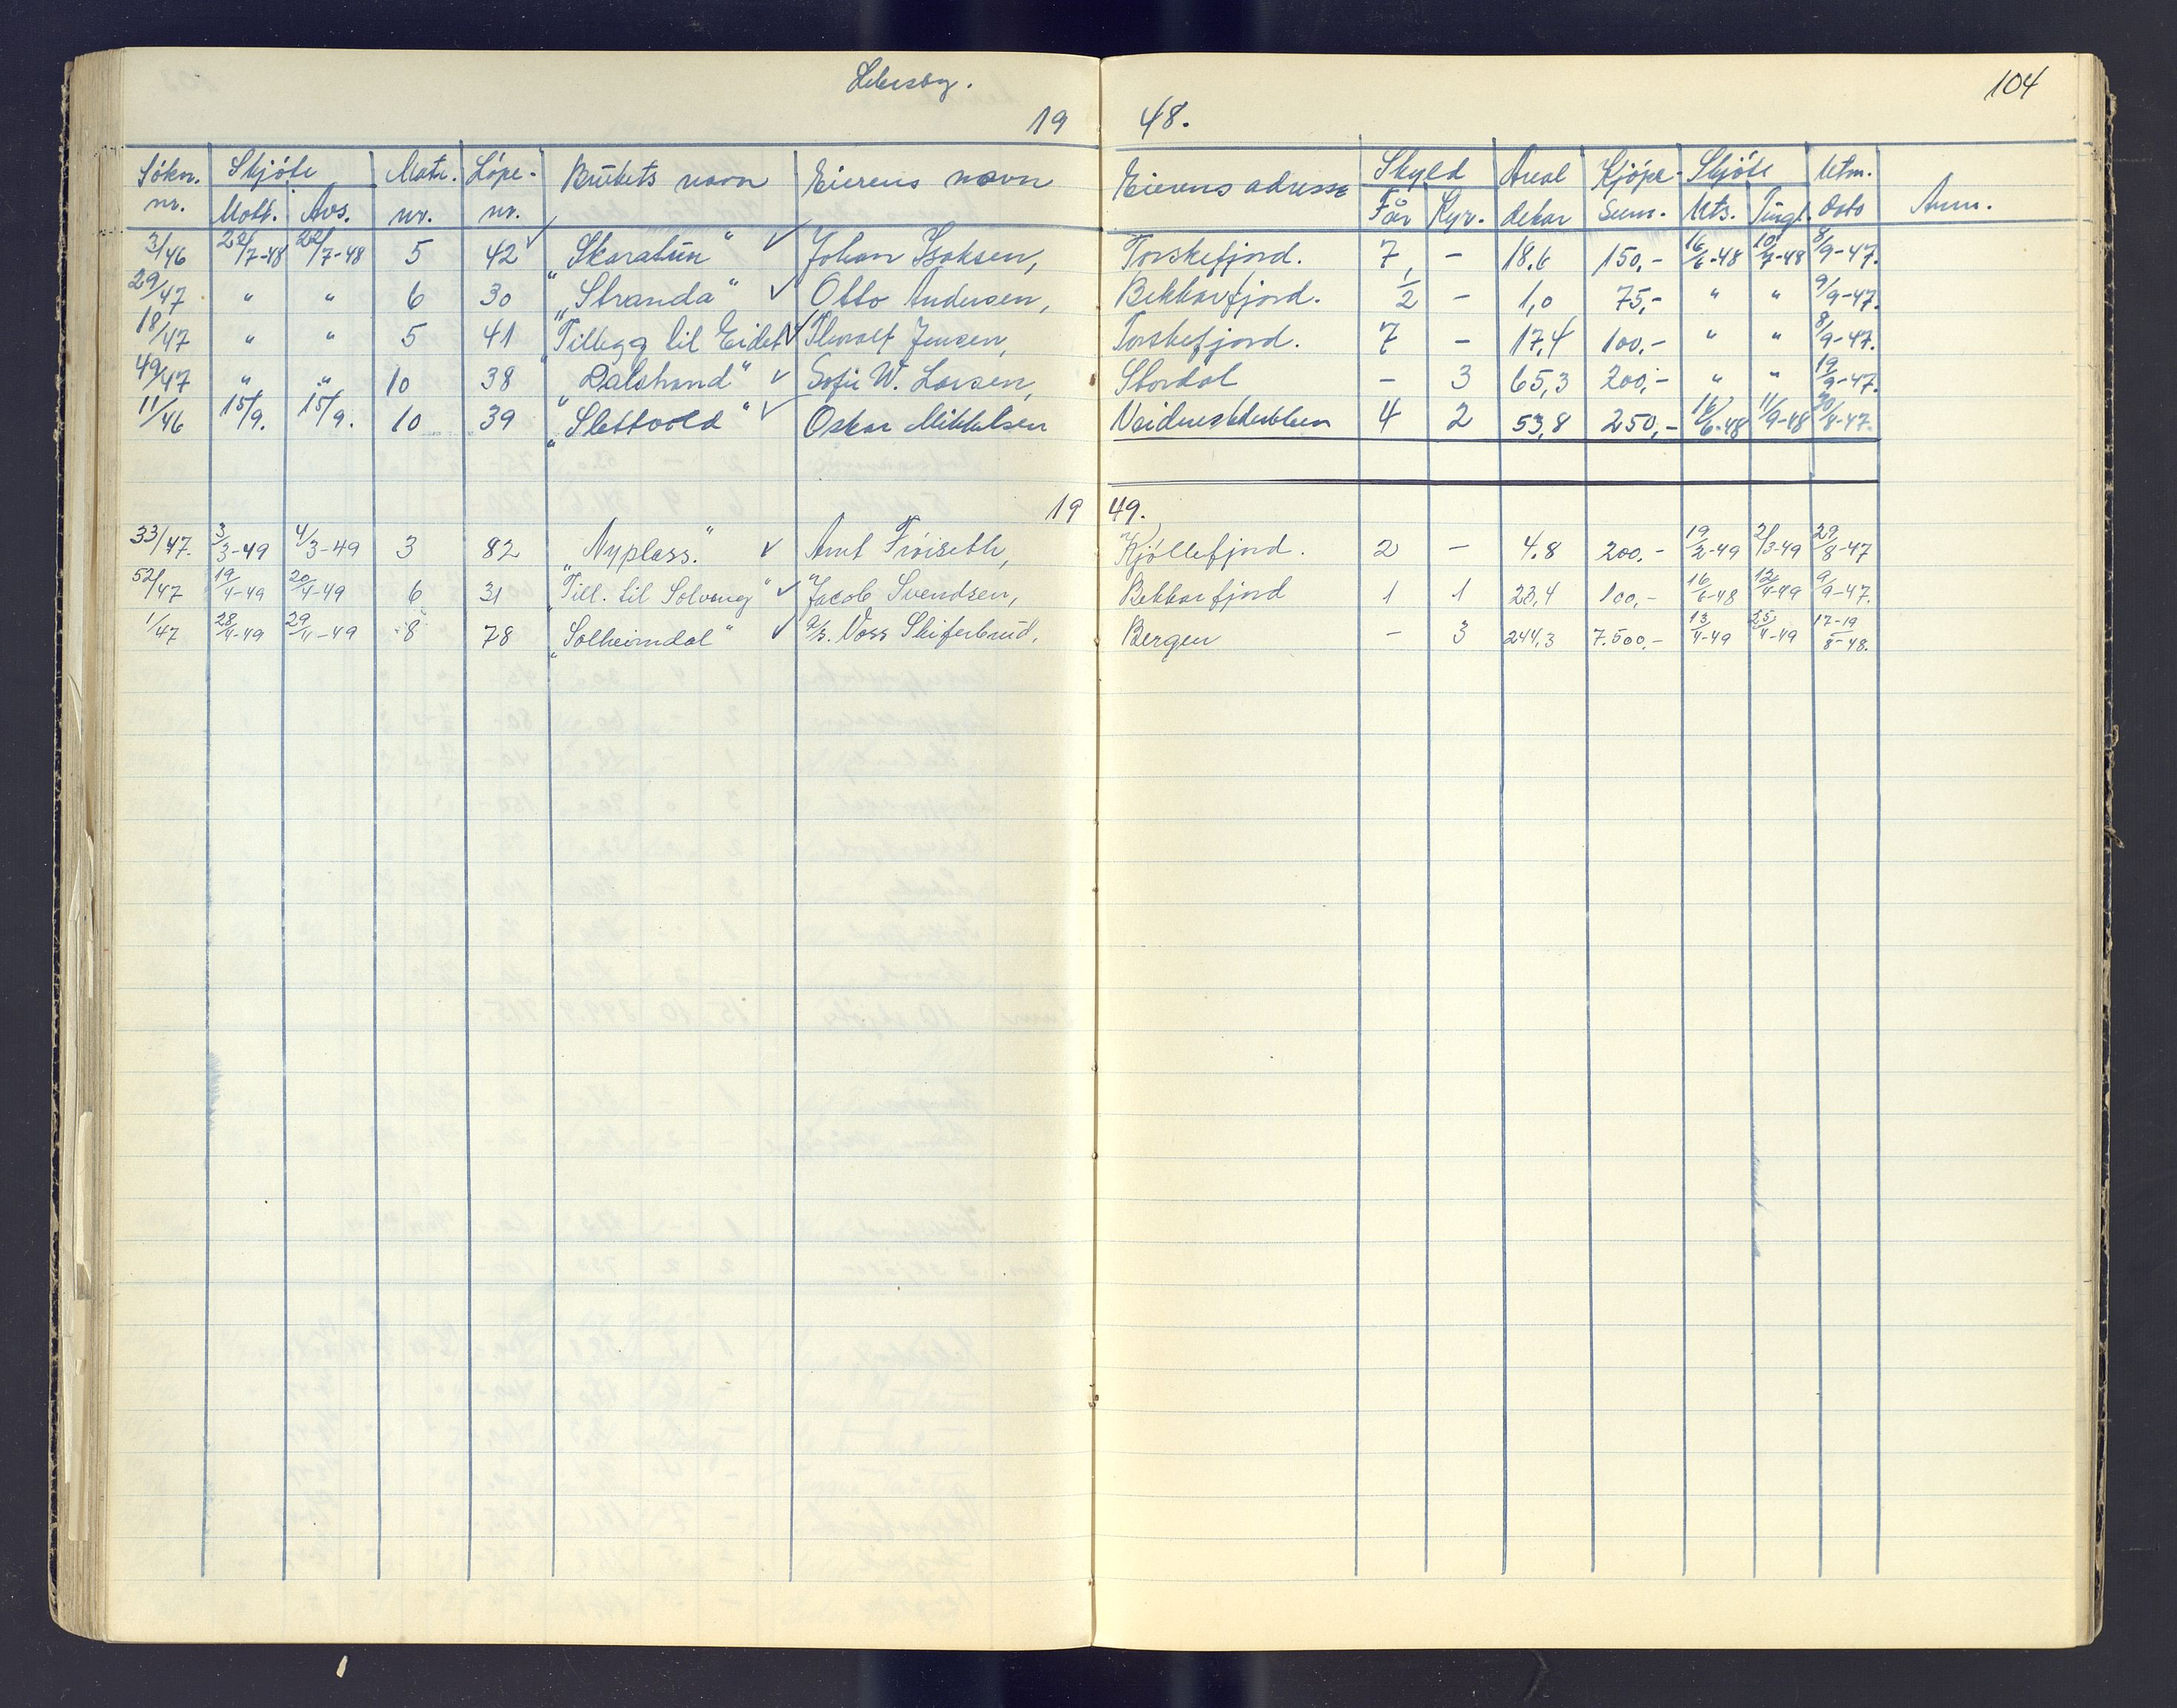 Lebesby.
104
19 48.
Søkn. nr. Skjøte Mott. Avs. Matr. nr. Løpe- nr. Brukets navn Eierens navn Eierens adresse Skyld Får Kyr. Areal dekar Kjøpe- sum. Skjøte Uts. Tingl. Utm. dato Anm.
3/46 22/7-48 22/7-48 5 42 ✓ "Skaratun" ✓ Johan Isaksen, Torskefjord. 7 - 18.6 150,- 16/6-48 10/7-48 8/9-47.
29/47 " " 6 30 "Stranda" ✓ Otto Andersen, Bekkarfjord. 1/2 - 1,0 75,- " " 9/9-47.
18/47 " " 5 41 "Tillegg til Eidet" ✓ Thoralf Jensen, Torskefjord. 7 - 17,4 100,- " " 8/9-47.
49/47 " " 10 38 "Dalstrand" ✓ Sofie W. Larsen, Stordal - 3 65,3 200,- " " 19/9-47.
11/46 15/9. 15/9. 10 39 "Slettvold" ✓ Oskar Mikkelsen 4 2 53,8 250,- 16/6-48 11/9-48 /8-47.
19 49.
33/47. 3/3-49 4/3-49 3 82 "Nyplass." ✓ Arnt Frøiseth, Kjøllefjord. 2 - 4.8 200.- 19/2-49 2/3-49 29/8-47
52/47 19/4-49 20/4-49 6 31 "Till. til Solveng" ✓ Jacob Svendsen, Bekkarfjord 1 1 23,4 100,- 16/6-48 12/4-49 9/9-47.
1/47 28/4-49 29/4-49 8 78 "Solheimdal" ✓ A/S. Voss Skiferbrud, Bergen - 3 244,3 7.500,- 13/4-49 25/4-49 17-19/8-48.